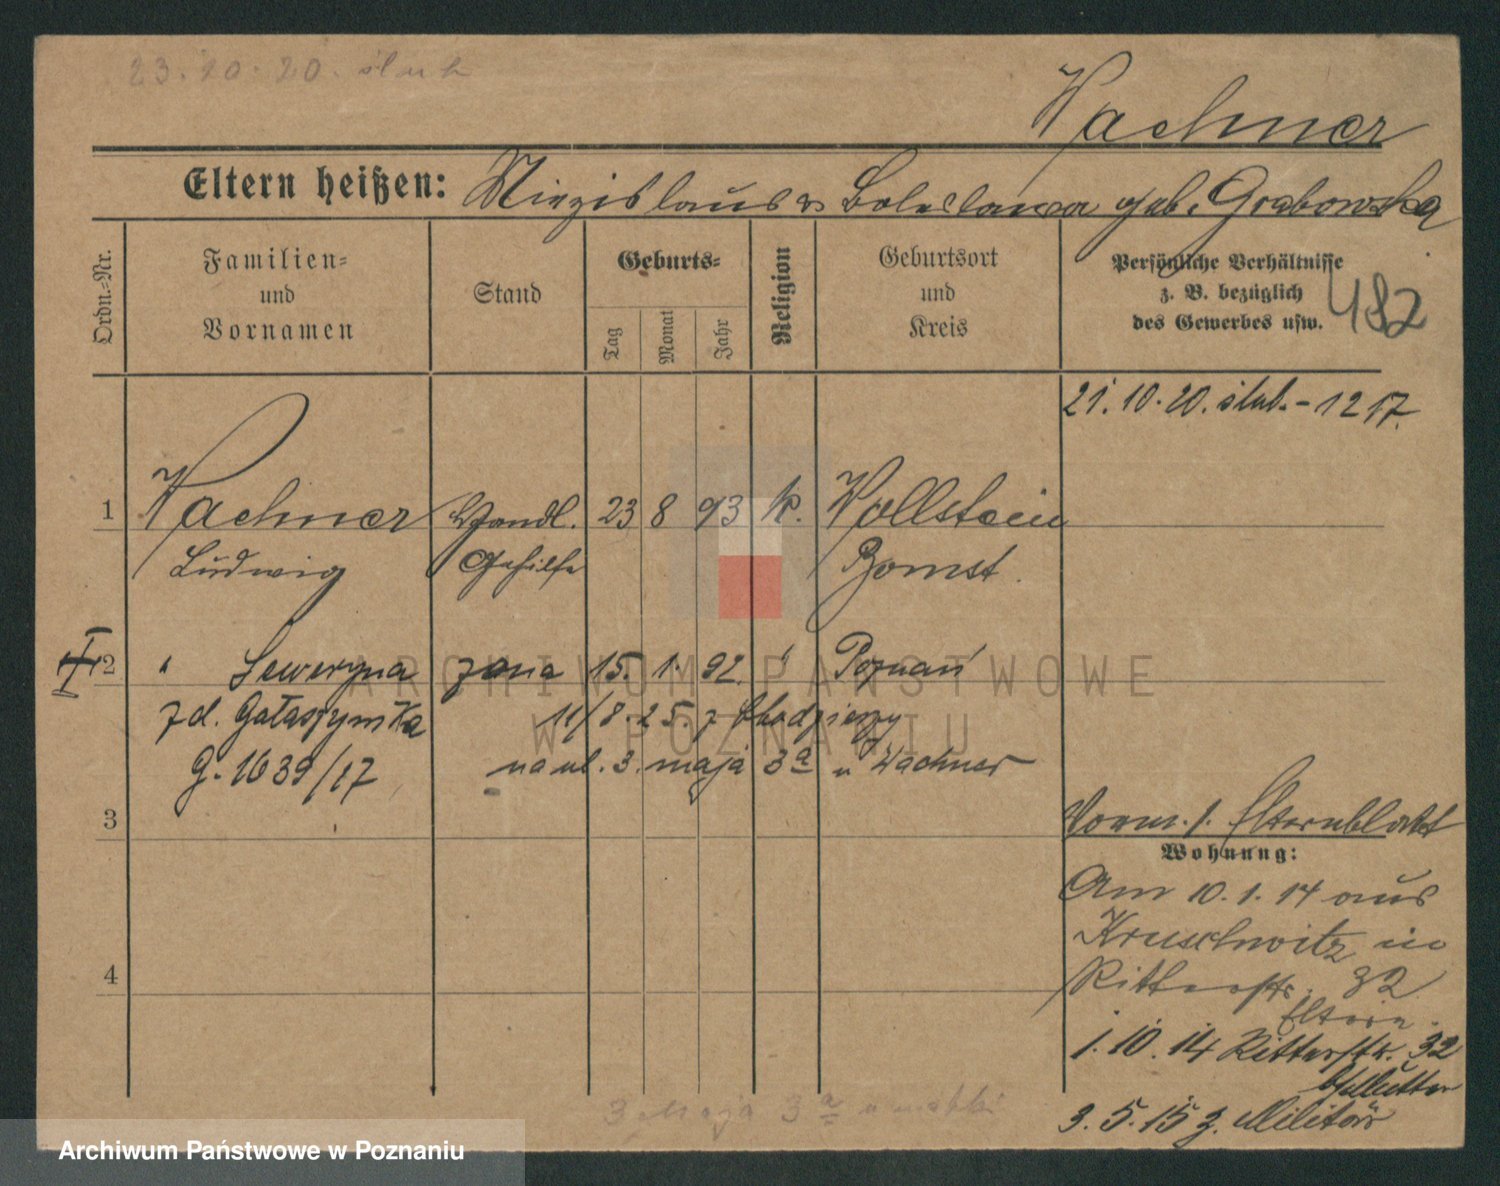 23.10.20. ślub
Wachner
Eltern heißen: Miezislaus u Boleslawa geb. Grabowska
Ordn.-Nr.
Familien-
und
Vornamen
Stand
Geburts-
Tag
Monat
Jahr
Religion
Geburtsort
und
Kreis
Persönliche Verhältnisse
z. B. bezüglich
des Gewerbes usw.
482
21.10.20. ślub. - 1217.
1 Wachner Handl. 23 8 93 k. Wollstein
Ludwig Gehilfe Bomst.
2 " Seweryna żona 15. 1. 92. " Poznań
z d. Gałaszymka 11/8.25. z Chodzieży
G. 1639/17 na ul. 3. maja 3a u Wachner
3
Vorm. s. Elternblatt
Wohnung:
Am 10.1.14 aus
Kruschwitz in
4
Ritterstr. 32
Eltern.
1.10.14 Ritterstr. 32
Mutter
3.5.15 z. Militär
3 Maja 3a u matki
ARCHIWUM PAŃSTWOWE
W POZNANIU
Archiwum Państwowe w Poznaniu